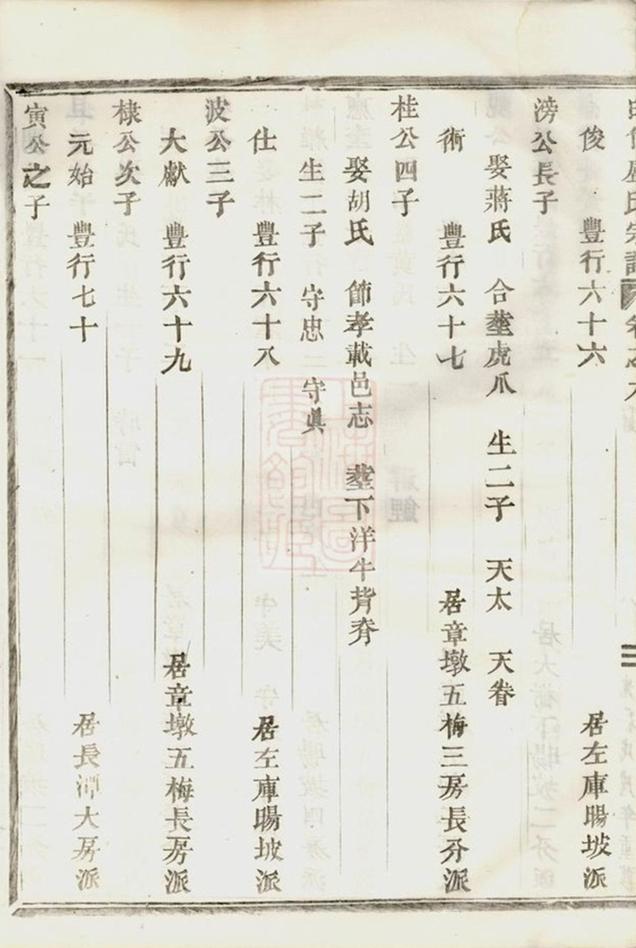 盧氏宗譜 卷之九
俊 豐行六十六 居左庫暘坡派
滂公長子
娶蔣氏 合塟虎爪 生二子 天太 天眷
術 豐行六十七 居章墩五梅三房長夯派
桂公四子
娶胡氏 節孝載邑志 塟下洋牛背脊
生二子 守忠 守眞
仕 豐行六十八 居左庫暘坡派
波公三子
大猷 豐行六十九 居章墩五梅長房派
棣公次子
元始 豐行七十 居長潭大房派
寅公之子